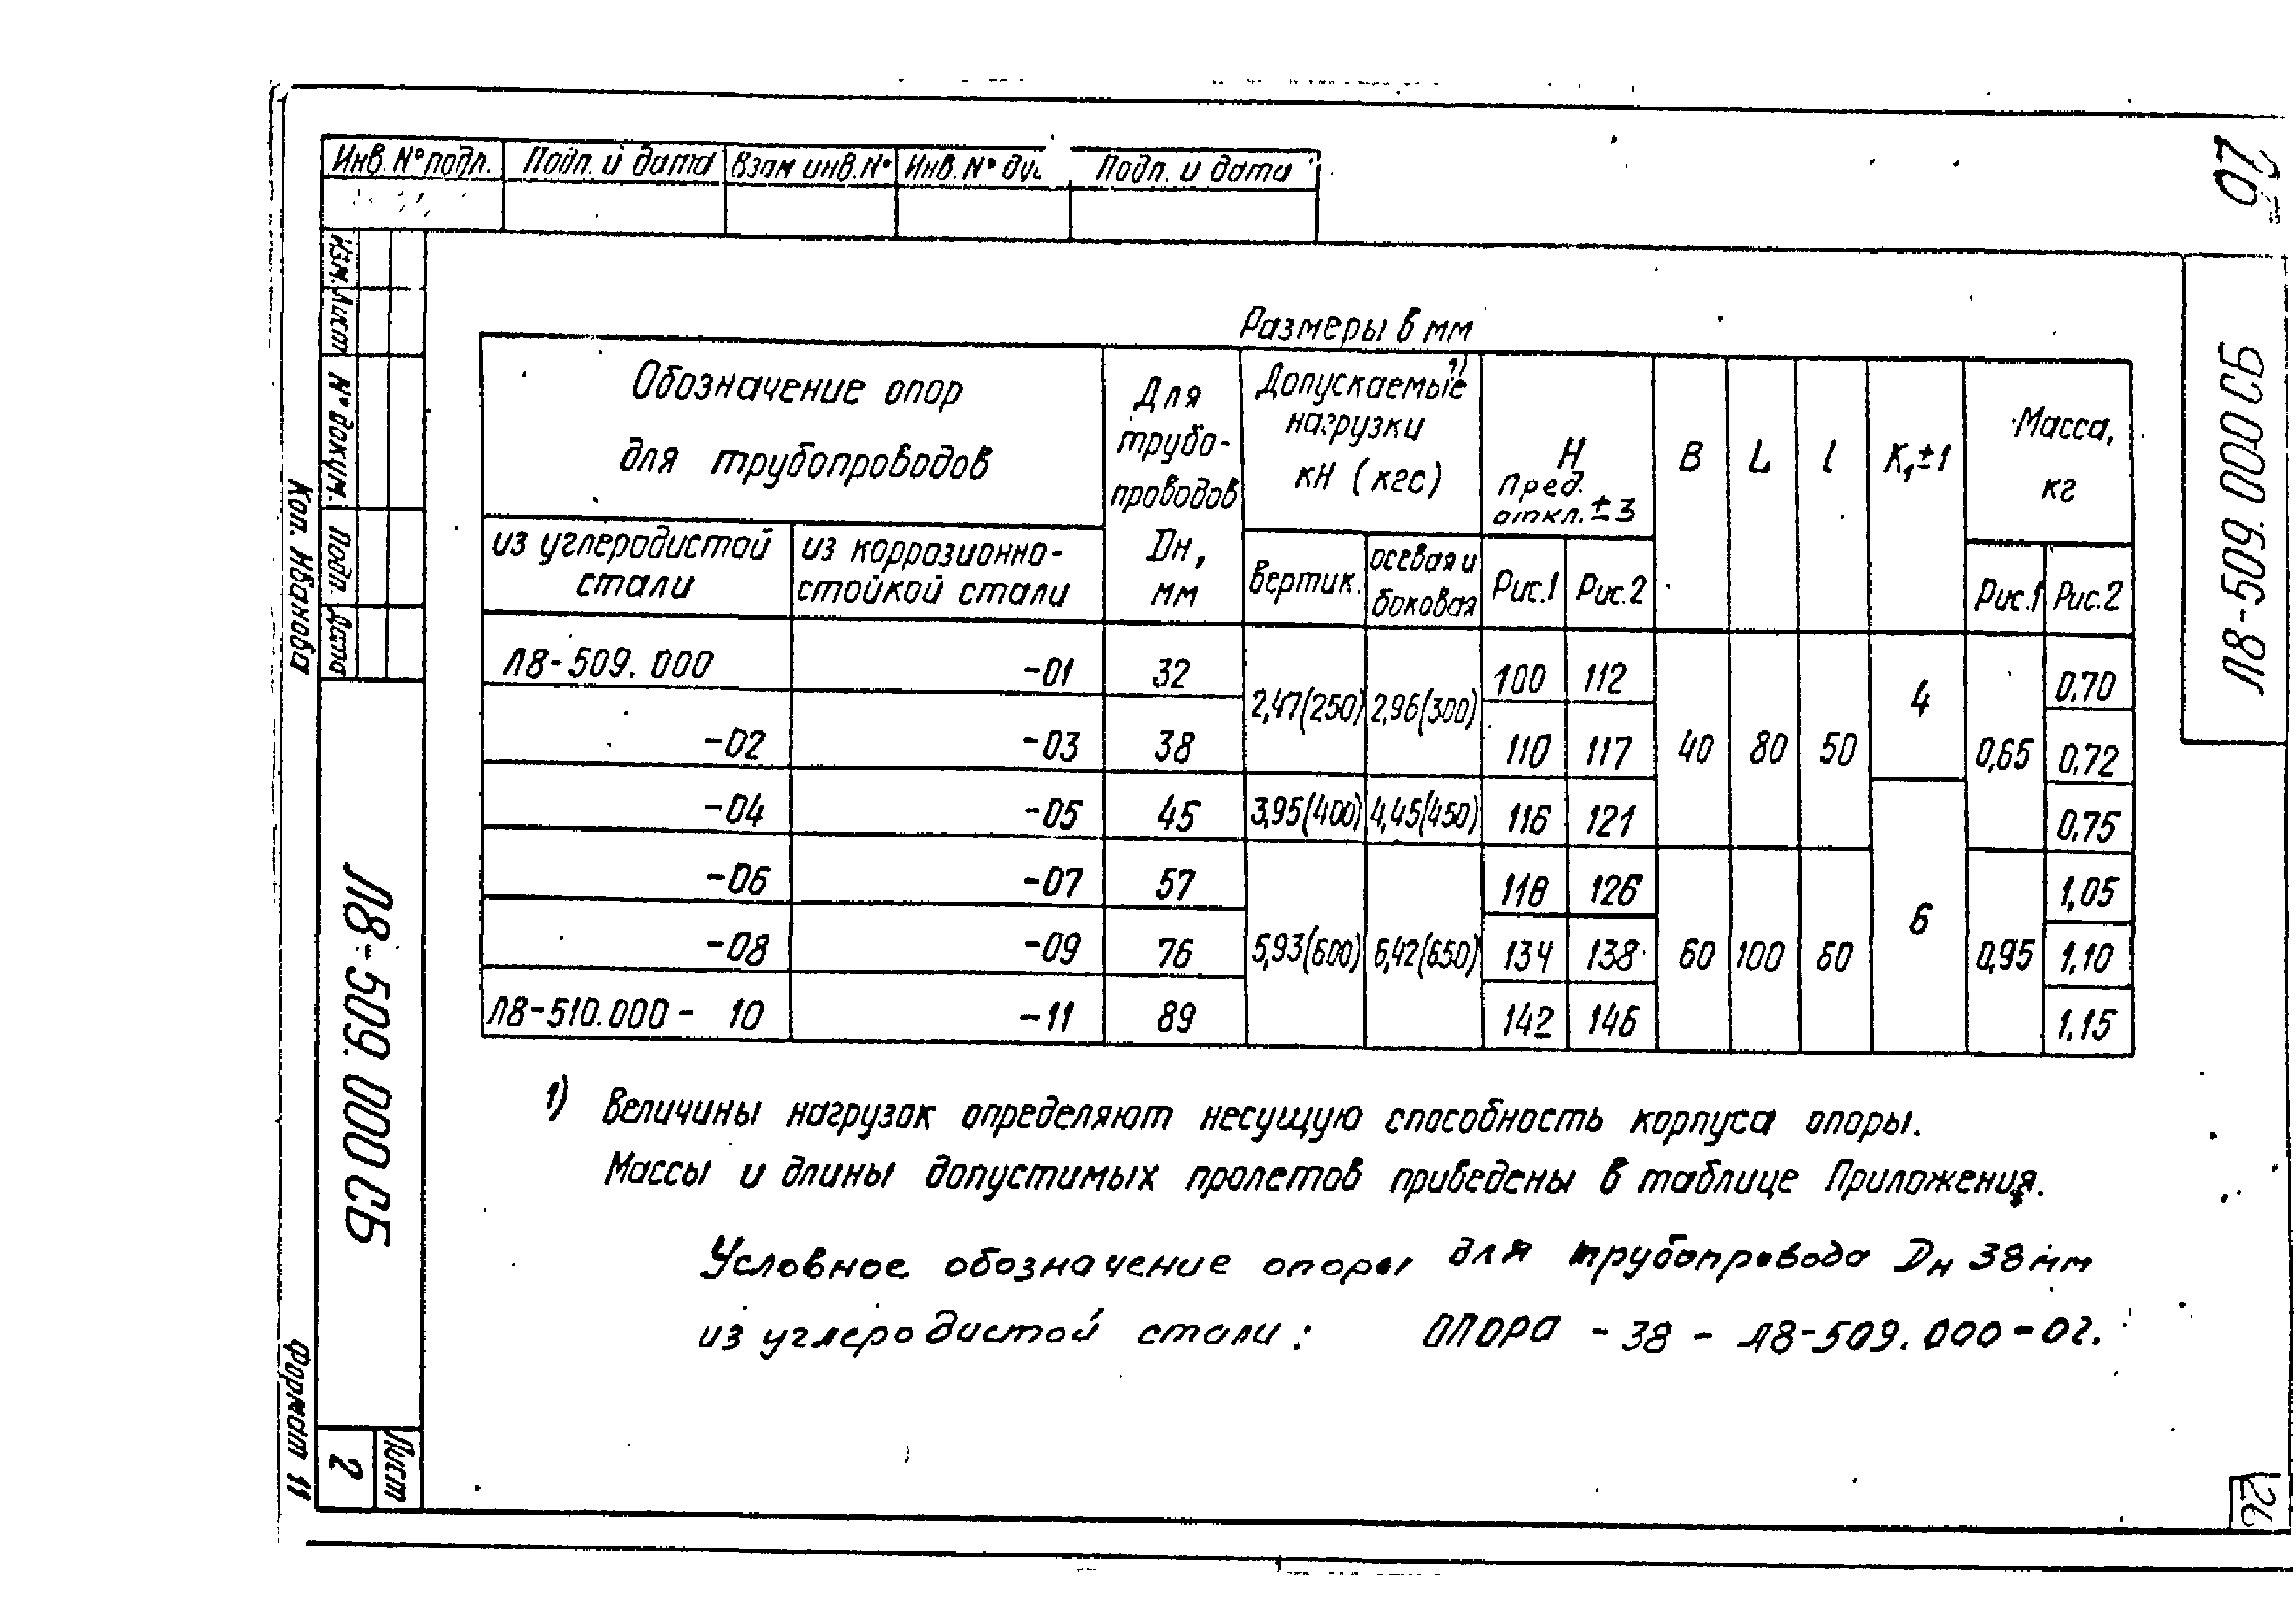 Инв. N° подл. Подп. и дата Взам инв. N° Инв. N° Подп. и дата
20
Изм. Лист N° докум. Подп. Дата
Коп. Иванова
Л8-509.000 СБ
Размеры в мм
Обозначение опор для трубопроводов
Для трубо-проводов Dн, мм
Допускаемые 1) нагрузки кН (кгс)
H Пред. откл. ±3
B
L
l
K₁±1
Масса, кг
из углеродистой стали
из коррозионно-стойкой стали
вертик.
осевая и боковая
Рис.1 Рис.2
Рис.1 Рис.2
Л8-509.000 -01 32 2,47(250) 2,96(300) 100 112 4 0,70
-02 -03 38 110 117 40 80 50 0,65 0,72
-04 -05 45 3,95(400) 4,45(450) 116 121 0,75
-06 -07 57 118 126 6 1,05
-08 -09 76 5,93(600) 6,42(650) 134 138 60 100 60 0,95 1,10
Л8-510.000 - 10 -11 89 142 146 1,15
1) Величины нагрузок определяют несущую способность корпуса опоры.
Массы и длины допустимых пролетов приведены в таблице Приложения.
Условное обозначение опоры для трубопровода Dн 38 мм
из углеродистой стали: ОПОРА - 38 - Л8-509.000-02.
Л8-509.000 СБ
Лист
2
Формат 11
26